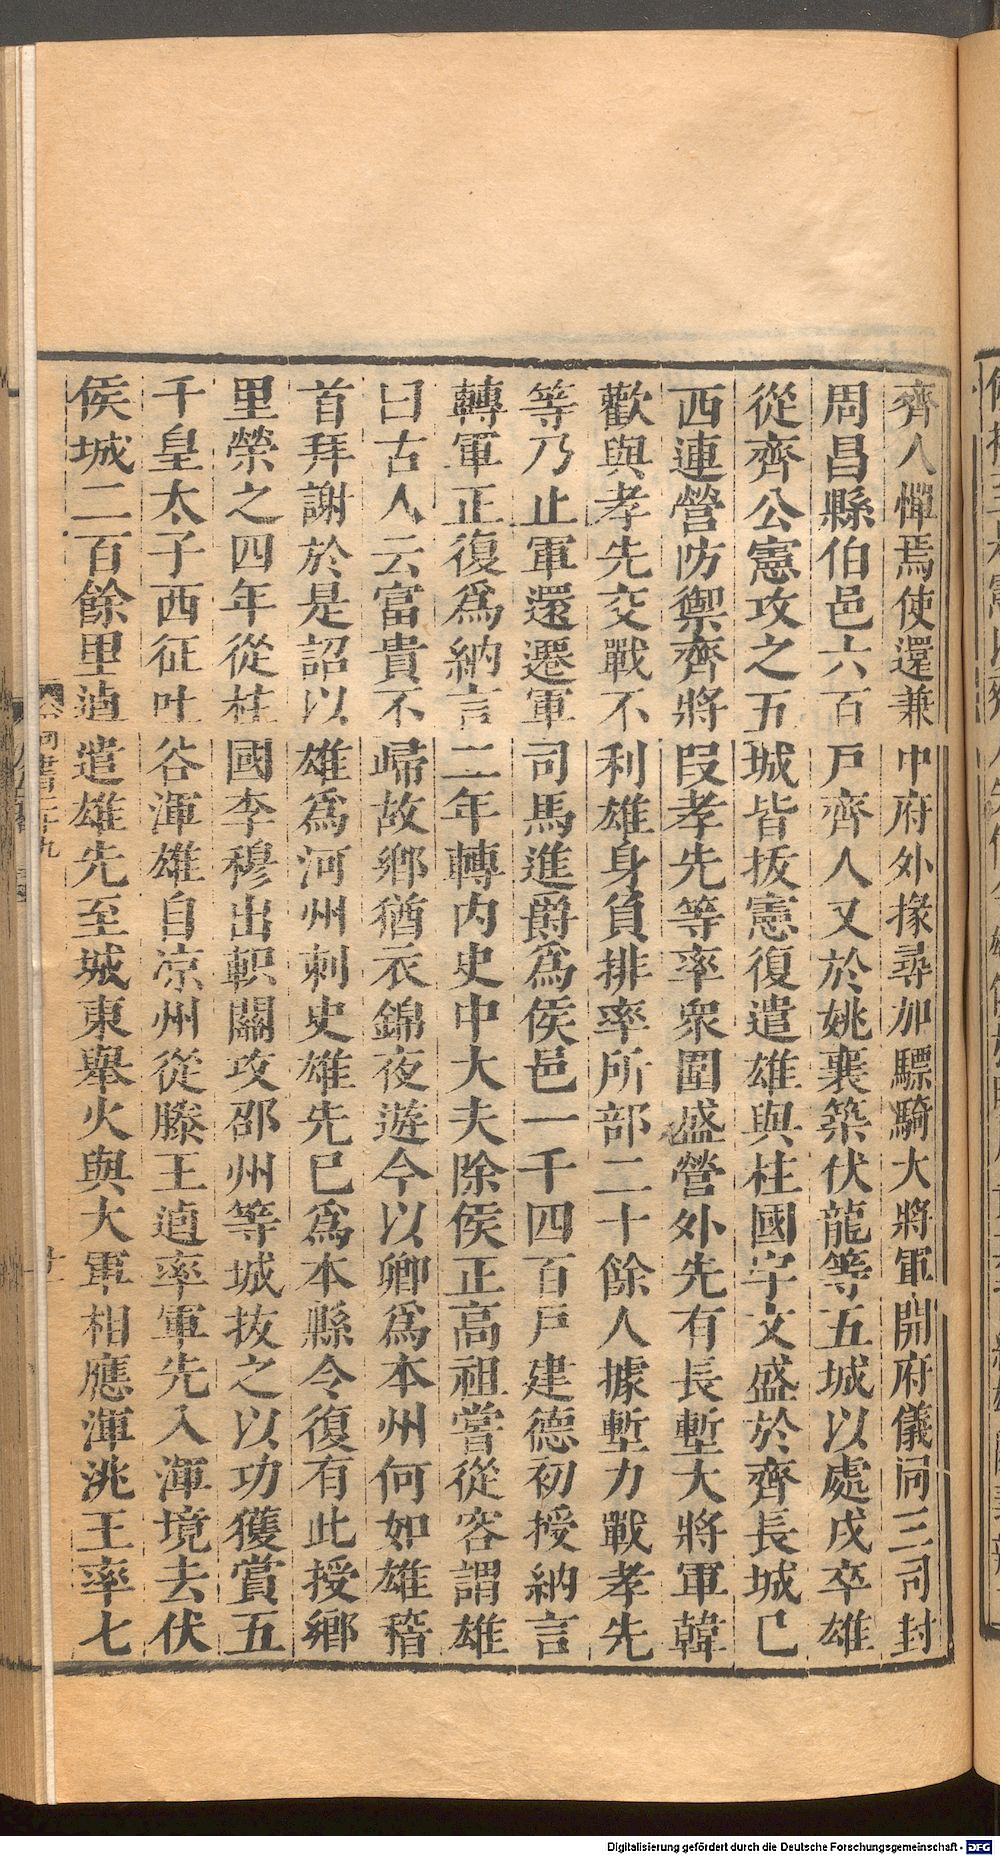 齊人憚焉使還兼中府外掾尋加驃騎大將軍開府儀同三司封
周昌縣伯邑六百戶齊人又於姚襄築伏龍等五城以處戍卒雄
從齊公憲攻之五城皆拔憲復遣雄與柱國宇文盛於齊長城已
西連營防禦齊將段孝先等率衆圍盛營外先有長塹大將軍韓
歡與孝先交戰不利雄身負排率所部二十餘人據塹力戰孝先
等乃止軍還遷軍司馬進爵爲侯邑一千四百戶建德初授納言
轉軍正復爲納言二年轉內史中大夫除侯正高祖嘗從容謂雄
曰古人云富貴不歸故鄉猶衣錦夜遊今以卿爲本州何如雄稽
首拜謝於是詔以雄爲河州刺史雄先已爲本縣令復有此授鄉
里榮之四年從柱國李穆出軹關攻邵州等城拔之以功獲賞五
千皇太子西征吐谷渾雄自涼州從滕王逌率軍先入渾境去伏
侯城二百餘里逌遣雄先至城東舉火與大軍相應渾洮王率七
二十九
Digitalisierung gefördert durch die Deutsche Forschungsgemeinschaft - DFG